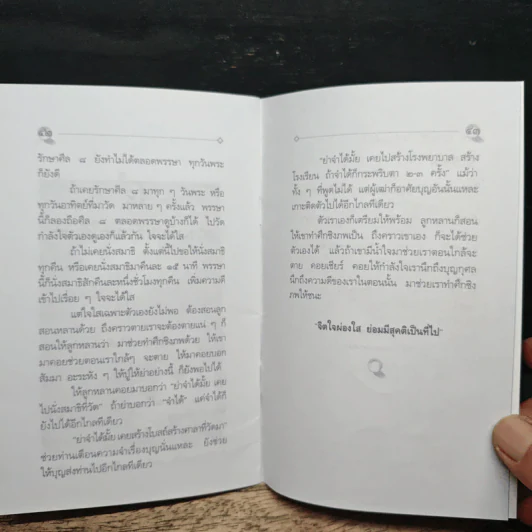 ๕๒
รักษาศีล ๘ ยังทำไม่ได้ตลอดพรรษา ทุกวันพระ
ก็ยังดี
ถ้าเคยรักษาศีล ๘ มาทุก ๆ วันพระ หรือ
ทุกวันอาทิตย์ที่มาวัด มาหลาย ๆ ครั้งแล้ว พรรษา
นี้ก็ลองถือศีล ๘ ตลอดพรรษาดูบ้างก็ได้ ไปวัด
กำลังใจตัวเองดูเองก็แล้วกัน ใจจะได้ใส
ถ้าไม่เคยนั่งสมาธิ ตั้งแต่นี้ไปขอให้นั่งสมาธิ
ทุกคืน หรือเคยนั่งสมาธิมาคืนละ ๑๕ นาที พรรษา
นี้ก็นั่งสมาธิสักคืนละหนึ่งชั่วโมงทุกคืน เพิ่มความดี
เข้าไปเรื่อย ๆ ใจจะได้ใส
แต่ใจใสเฉพาะตัวเองยังไม่พอ ต้องสอนลูก
สอนหลานด้วย ถึงคราวตายเราจะต้องตายแน่ ๆ ก็
สอนให้ลูกหลานว่า มาช่วยทำศึกชิงภพด้วย ให้เรา
มาคอยช่วยตอนเราใกล้ๆ จะตาย ให้มาคอยบอก
สัมมา อะระหัง ๆ ให้ปู่ให้ย่าอย่างนี้ ก็ยังพอไปได้
ให้ลูกหลานคอยมาบอกว่า "ย่าจำได้มั้ย เคย
ไปนั่งสมาธิที่วัด" ถ้าย่าบอกว่า "จำได้" แค่จำได้ก็
ยังไปได้อีกไกลทีเดียว
"ย่าจำได้มั้ย เคยสร้างโบสถ์สร้างศาลาที่วัดมา"
ช่วยท่านเตือนความจำเรื่องบุญนั่นแหละ ยังช่วย
ให้บุญส่งท่านไปอีกไกลทีเดียว
๕๓
"ย่าจำได้มั้ย เคยไปสร้างโรงพยาบาล สร้าง
โรงเรียน ถ้าจำได้ก็กระพริบตา ๒-๓ ครั้ง" แม้ว่า
ทั้ง ๆ ที่พูดไม่ได้ แต่ผู้เฒ่าก็อาศัยบุญอันนั้นแหละ
เกาะติดตัวไปได้อีกไกลทีเดียว
ตัวเราเองก็เตรียมให้พร้อม ลูกหลานก็สอน
ให้เขาทำศึกชิงภพเป็น ถึงคราวเขาเอง ก็จะได้ช่วย
ตัวเองได้ แล้วถ้าเขามีน้ำใจมาช่วยเราตอนใกล้จะ
ตาย คอยเชียร์ คอยให้กำลังใจเรานึกถึงบุญกุศล
นึกถึงความดีของเราในตอนนั้น มาช่วยเราทำศึกชิง
ภพให้ชนะ
"จิตใจผ่องใส ย่อมมีสุคติเป็นที่ไป"